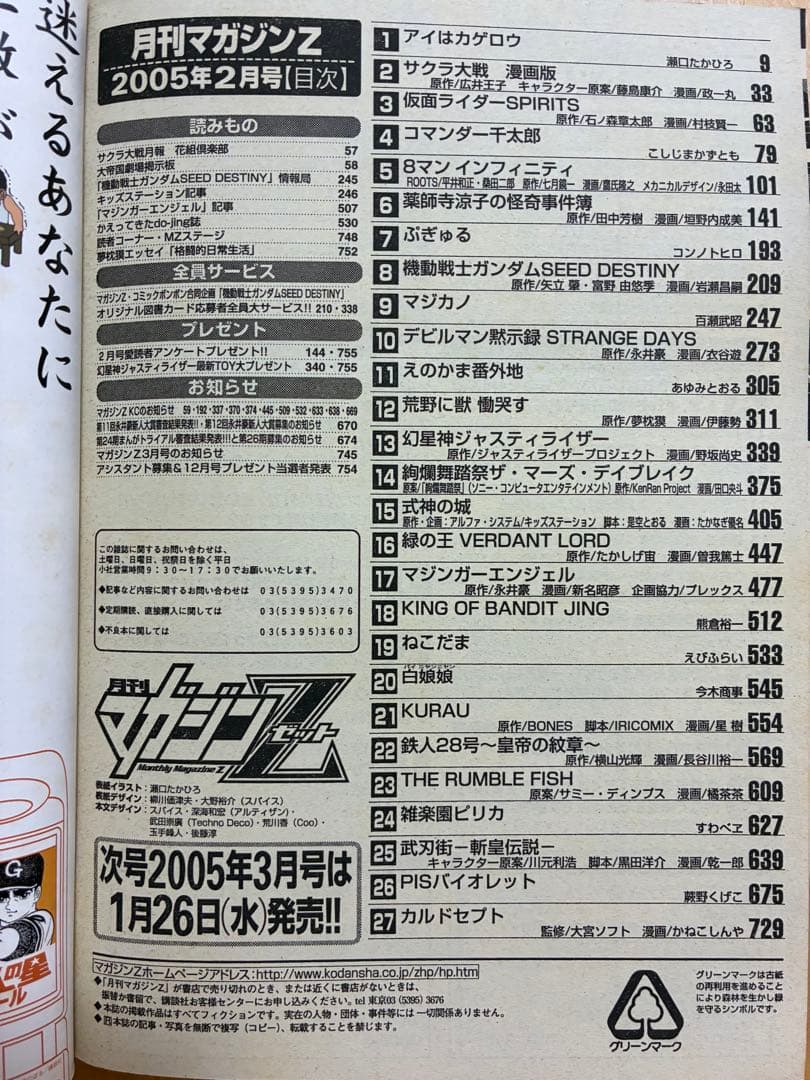 迷えるあなたに
月刊マガジンZ
2005年2月号【目次】
読みもの
サクラ大戦月報 花組倶楽部 57
大帝国劇場掲示板 58
「機動戦士ガンダムSEED DESTINY」情報局 245
キッズステーション記事 246
「マジンガーエンジェル」記事 507
かえってきたdo-jing誌 530
読者コーナー・MZステージ 748
夢枕獏エッセイ「格闘的日常生活」 752
全員サービス
マガジンZ・コミックボンボン合同企画「機動戦士ガンダムSEED DESTINY」
オリジナル図書カード応募者全員大サービス!! 210・338
プレゼント
2月号愛読者アンケートプレゼント!! 144・755
幻星神ジャスティライザー最新TOY大プレゼント 340・755
お知らせ
マガジンZ KCのお知らせ 59・192・337・370・374・445・509・532・633・638・669
第11回永井豪新人大賞審査結果発表!!・第12回永井豪新人大賞募集のお知らせ 670
第24期まんがトライアル審査結果発表!!!と第26期募集のお知らせ 674
マガジンZ3月号のお知らせ 745
アシスタント募集&12月号プレゼント当選者発表 754
この雑誌に関するお問い合わせは、
土曜日、日曜日、祝祭日を除く平日
小社営業時間9:30~17:30でお願いいたします。
◆記事など内容に関するお問い合わせは 03(5395)3470
◆定期購読、直接購入に関しては 03(5395)3676
◆不良本に関しては 03(5395)3603
月刊
マガジンZ
ゼット
Monthly Magazine Z
表紙イラスト:瀬口たかひろ
表紙デザイン:柳川価津夫・大野裕介(スパイス)
本文デザイン:スパイス・深海和宏(アルティザン)・
武田崇廣(Techno Deco)・荒川香(Coo)・
玉手峰人・後藤淳
次号2005年3月号は
1月26日(水)発売!!
1 アイはカゲロウ
瀬口たかひろ 9
2 サクラ大戦 漫画版
原作/広井王子 キャラクター原案/藤島康介 漫画/政一九 33
3 仮面ライダーSPIRITS
原作/石ノ森章太郎 漫画/村枝賢一 63
4 コマンダー千太郎
こしじまかずとも 79
5 8マン インフィニティ
ROOTS/平井和正・桑田二郎 原作/七月鏡一 漫画/鷹氏隆之 メカニカルデザイン/永田太 101
6 薬師寺涼子の怪奇事件簿
原作/田中芳樹 漫画/垣野内成美 141
7 ぷぎゅる
コンノトヒロ 193
8 機動戦士ガンダムSEED DESTINY
原作/矢立 肇・富野 由悠季 漫画/岩瀬昌嗣 209
9 マジカノ
百瀬武昭 247
10 デビルマン黙示録 STRANGE DAYS
原作/永井豪 漫画/衣谷遊 273
11 えのかま番外地
あゆみとおる 305
12 荒野に獣 慟哭す
原作/夢枕獏 漫画/伊藤勢 311
13 幻星神ジャスティライザー
原作/ジャスティライザープロジェクト 漫画/野坂尚史 339
14 絢爛舞踏祭ザ・マーズ・デイブレイク
原案/「絢爛舞踏祭」(ソニー・コンピュータエンタテインメント) 原作/KenRan Project 漫画/田口央斗 375
15 式神の城
原作・企画:アルファ・システム/キッズステーション 脚本:是空とおる 漫画:たかなぎ優名 405
16 緑の王 VERDANT LORD
原作/たかしげ宙 漫画/曽我篤士 447
17 マジンガーエンジェル
原作/永井豪 漫画/新名昭彦 企画協力/ブレックス 477
18 KING OF BANDIT JING
熊倉裕一 512
19 ねこだま
えびふらい 533
20 白娘娘
パイニャンニャン
今木商事 545
21 KURAU
原作/BONES 脚本/IRICOMIX 漫画/星 樹 554
22 鉄人28号~皇帝の紋章~
原作/横山光輝 漫画/長谷川裕一 569
23 THE RUMBLE FISH
原案/サミー・ディンプス 漫画/橘茶茶 609
24 雑楽園ピリカ
すわべヱ 627
25 武刃街-斬皇伝説-
キャラクター原案/川元利浩 脚本/黒田洋介 漫画/乾一郎 639
26 PISバイオレット
蕨野くげこ 675
27 カルドセプト
監修/大宮ソフト 漫画/かねこしんや 729
マガジンZホームページアドレス:http://www.kodansha.co.jp/zhp/hp.htm
◆「月刊マガジンZ」が書店で売り切れのとき、または近くに書店がないときは、
振替か書留で、講談社お客様センターにお申し込みください。tel 東京03 (5395) 3676
◆本誌の掲載作品はすべてフィクションです。実在の人物・団体・事件等には一切関係ありません。
◆本誌の記事・写真を無断で複写(コピー)、転載することを禁じます。
グリーンマーク
グリーンマークは古紙
の再利用を進めること
により森林を生かし緑
を守るシンボルです。
G
人の星